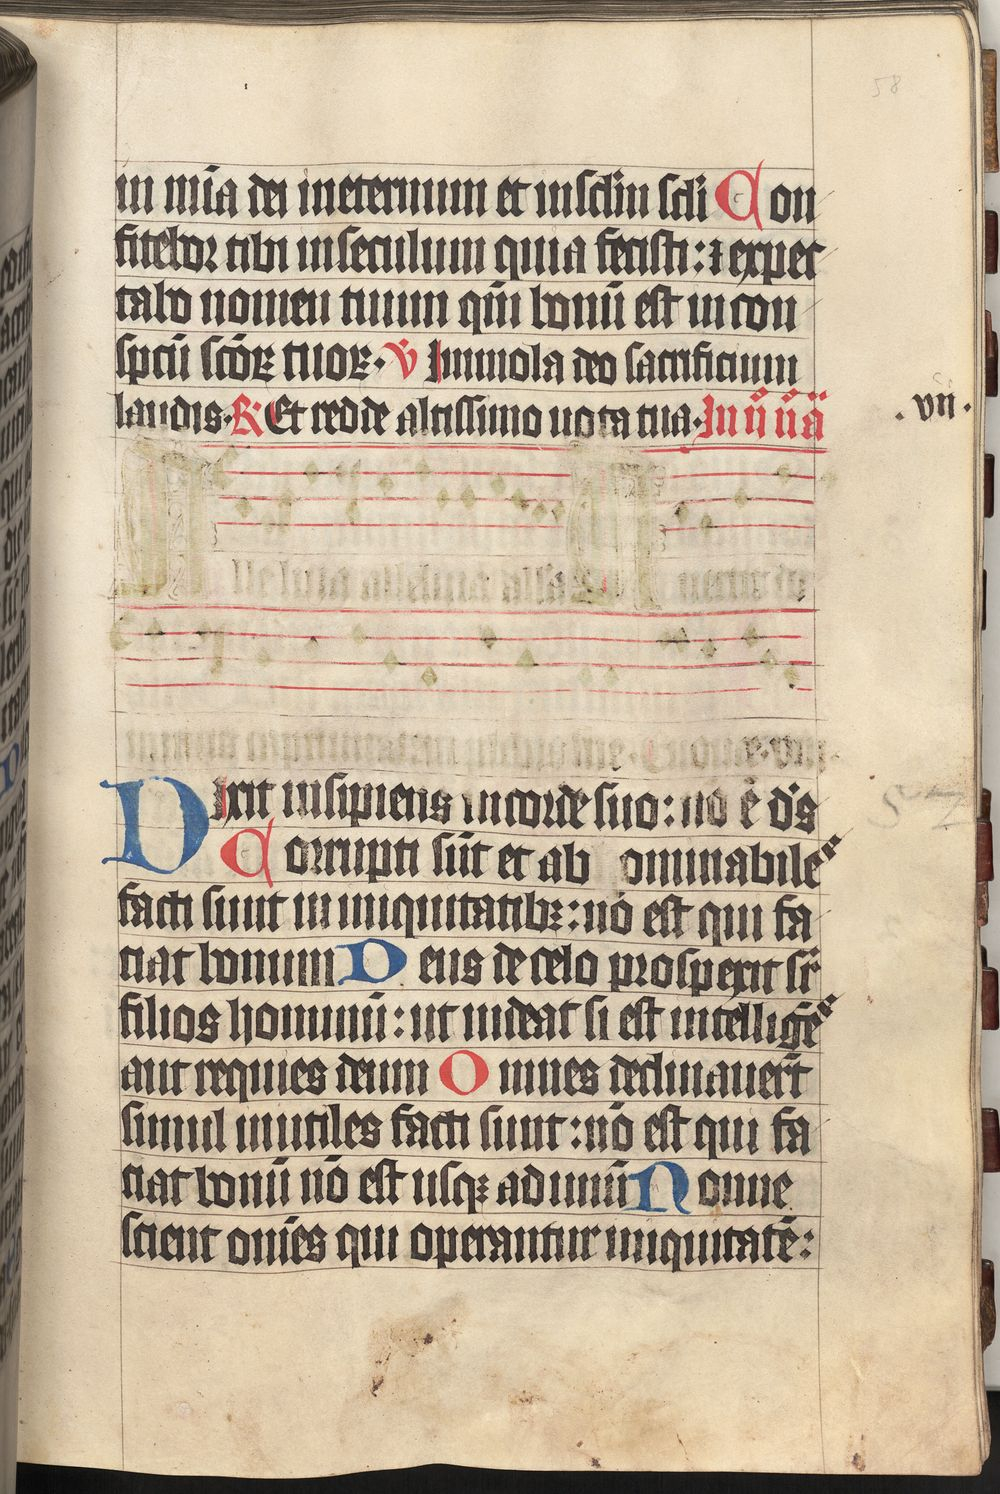 58
in mīa dei ineternum et insclm scli Con
fitebor tibi inseculum quia fecisti: ⁊ expec
tabo nomen tuum qm̄ bonū est incon
spcū scōꝝ tuoꝝ. ℣ Immola deo sacrificium
laudis. ℟ Et redde altissimo uota tua.
.vii.
lleluia alleluia alla
Dixit insipiens incorde suo: nō ē ds
Corrupti sūt et ab ominabiles
facti sunt in iniquitatibꝫ: nō est qui fa
ciat bonum Deus de celo prospexit sr̄
filios hominū: ut uideat si est intelligēs
aut requires deum Omnes declinauer̄t
simul inutiles facti sunt: nō est qui fa
ciat bonū nō est usqꝫ adunū Nonne
scient om̄es qui operantur iniquitatē: